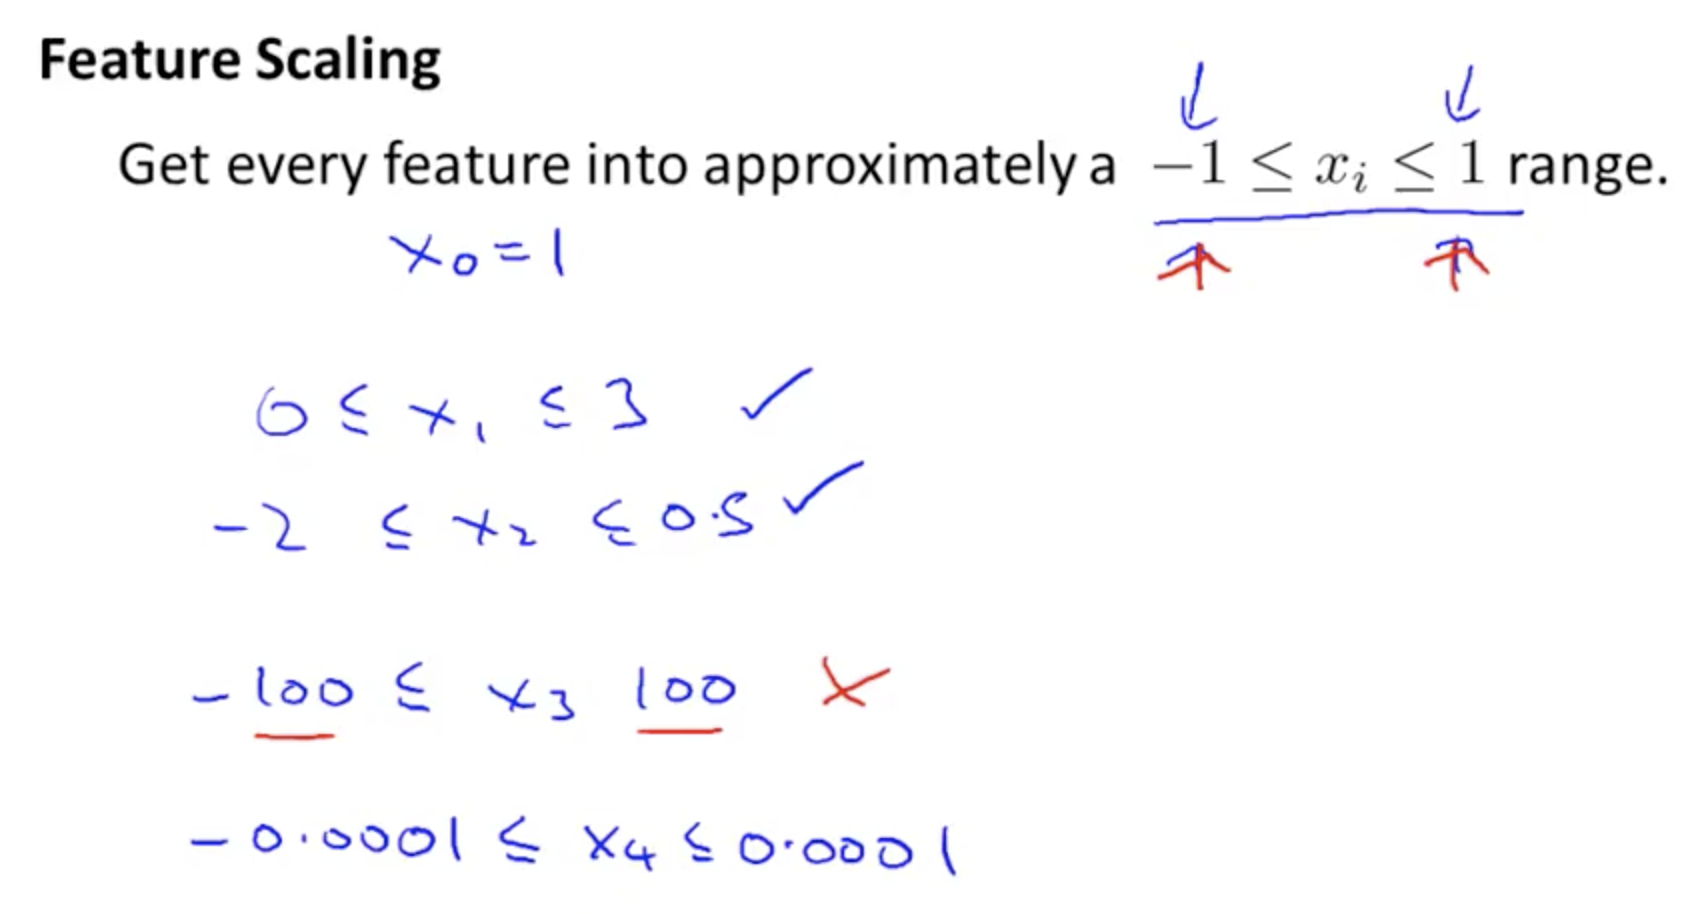 Feature Scaling
Get every feature into approximately a −1 ≤ xᵢ ≤ 1 range.
x₀ = 1
0 ≤ x₁ ≤ 3 ✓
-2 ≤ x₂ ≤ 0.5 ✓
-100 ≤ x₃ 100 ✗
-0.0001 ≤ x₄ ≤ 0.0001